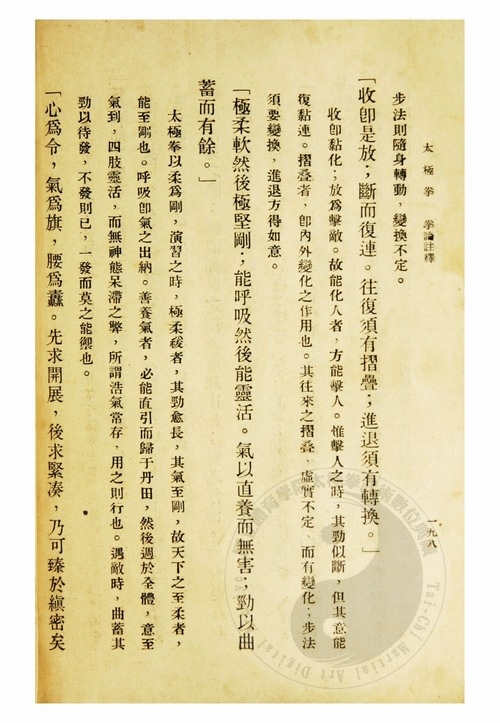 太極拳　拳論註釋
一九八
步法則隨身轉動，變換不定。
「收卽是放；斷而復連。往復須有摺疊；進退須有轉換。」
收卽黏化；放爲擊敵。故能化人者，方能擊人。惟擊人之時，其勁似斷，但其意能
復黏連。摺疊者，卽內外變化之作用也。其往來之摺疊，虛實不定，而有變化；步法
須要變換，進退方得如意。
「極柔軟然後極堅剛；能呼吸然後能靈活。氣以直養而無害；勁以曲
蓄而有餘。」
太極拳以柔爲剛，演習之時，極柔緩者，其勁愈長，其氣至剛，故天下之至柔者，
能至剛也。呼吸卽氣之出納。善養氣者，必能直引而歸于丹田，然後週於全體，意至
氣到，四肢靈活，而無神態呆滯之弊，所謂浩氣常存，用之則行也。遇敵時，曲蓄其
勁以待發，不發則已，一發而莫之能禦也。
「心爲令，氣爲旗，腰爲纛。先求開展，後求緊凑，乃可臻於縝密矣
Tai-Chi Martial Art Digital